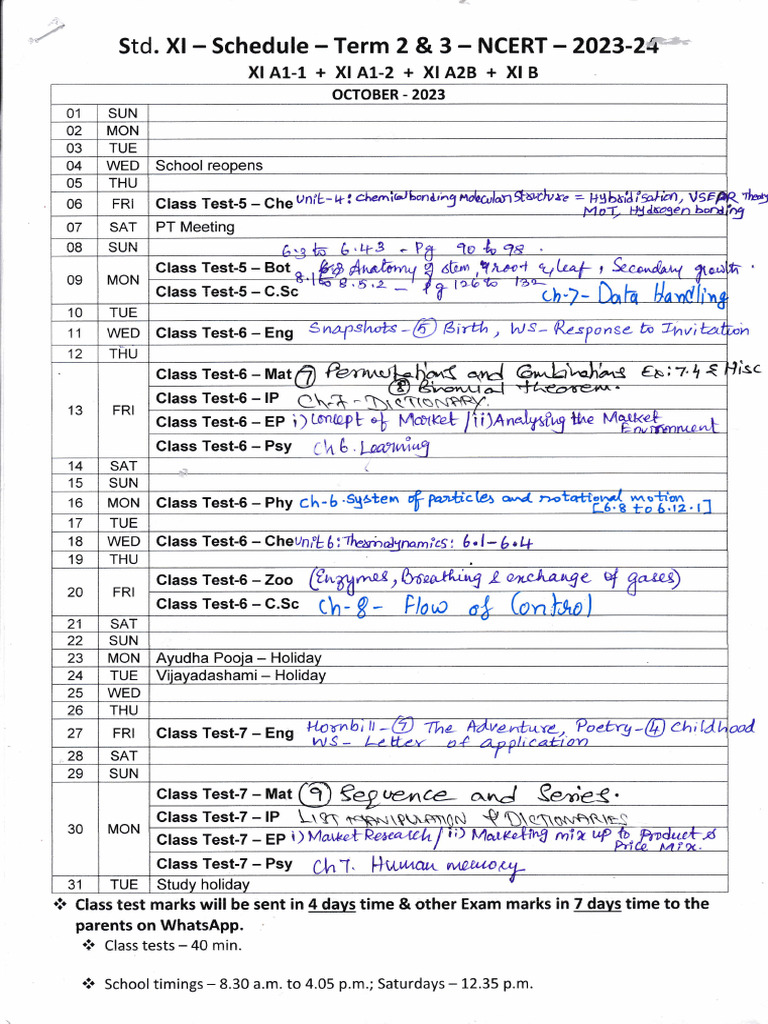 Std. XI – Schedule – Term 2 & 3 – NCERT – 2023-24
XI A1-1 + XI A1-2 + XI A2B + XI B
OCTOBER - 2023
01 SUN
02 MON
03 TUE
04 WED School reopens
05 THU
06 FRI Class Test-5 – Che Unit-4: Chemical bonding Molecular Structure = Hybridisation, VSEPR Theory
MOT, Hydrogen bonding
07 SAT PT Meeting
08 SUN
6.3 to 6.43 - Pg 90 to 98.
09 MON Class Test-5 – Bot Anatomy of stem, root & leaf, Secondary growth.
8.1 to 8.5.2 – Pg 126 to 132
Class Test-5 – C.Sc Ch-7- Data Handling
10 TUE
11 WED Class Test-6 – Eng Snapshots-⑤ Birth, WS-Response to Invitation
12 THU
13 FRI Class Test-6 – Mat ⑦ Permutations and Combinations Ex:7.4 & Misc
⑧ Binomial Theorem.
Class Test-6 – IP Ch-7 - DICTIONARY.
Class Test-6 – EP i) Concept of Market / ii) Analysing the Market
Environment
Class Test-6 – Psy Ch 6. Learning
14 SAT
15 SUN
16 MON Class Test-6 – Phy Ch-6. System of particles and rotational motion
[6.8 to 6.12.1]
17 TUE
18 WED Class Test-6 – Che Unit 6: Thermodynamics: 6.1-6.4
19 THU
20 FRI Class Test-6 – Zoo (Enzymes, Breathing & exchange of gases)
Class Test-6 – C.Sc Ch-8- Flow of Control
21 SAT
22 SUN
23 MON Ayudha Pooja – Holiday
24 TUE Vijayadashami – Holiday
25 WED
26 THU
27 FRI Class Test-7 – Eng Hornbill-⑦ The Adventure, Poetry-④ Childhood
WS- Letter of application
28 SAT
29 SUN
30 MON Class Test-7 – Mat ⑨ Sequence and Series.
Class Test-7 – IP LIST MANIPULATION & DICTIONARIES
Class Test-7 – EP i) Market Research / ii) Marketing mix up to Product &
Price Mix.
Class Test-7 – Psy Ch 7. Human memory
31 TUE Study holiday
❖ Class test marks will be sent in 4 days time & other Exam marks in 7 days time to the
parents on WhatsApp.
❖ Class tests – 40 min.
❖ School timings – 8.30 a.m. to 4.05 p.m.; Saturdays – 12.35 p.m.